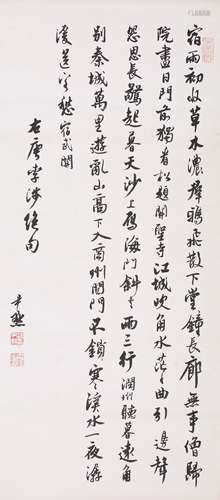 宿雨初收草木濃群鴉飛散下堂鐘長廊無事僧歸
院盡日門前獨看松題開聖寺江城吹角水茫茫曲引邊聲
怨思長驚起暮天沙上雁海門斜去兩三行潤州聽暮遠角
別秦城萬里遊亂山高下入商州關門不鎖寒溪水一夜潺
湲送客愁宿武關
右唐李涉絕句
尹默